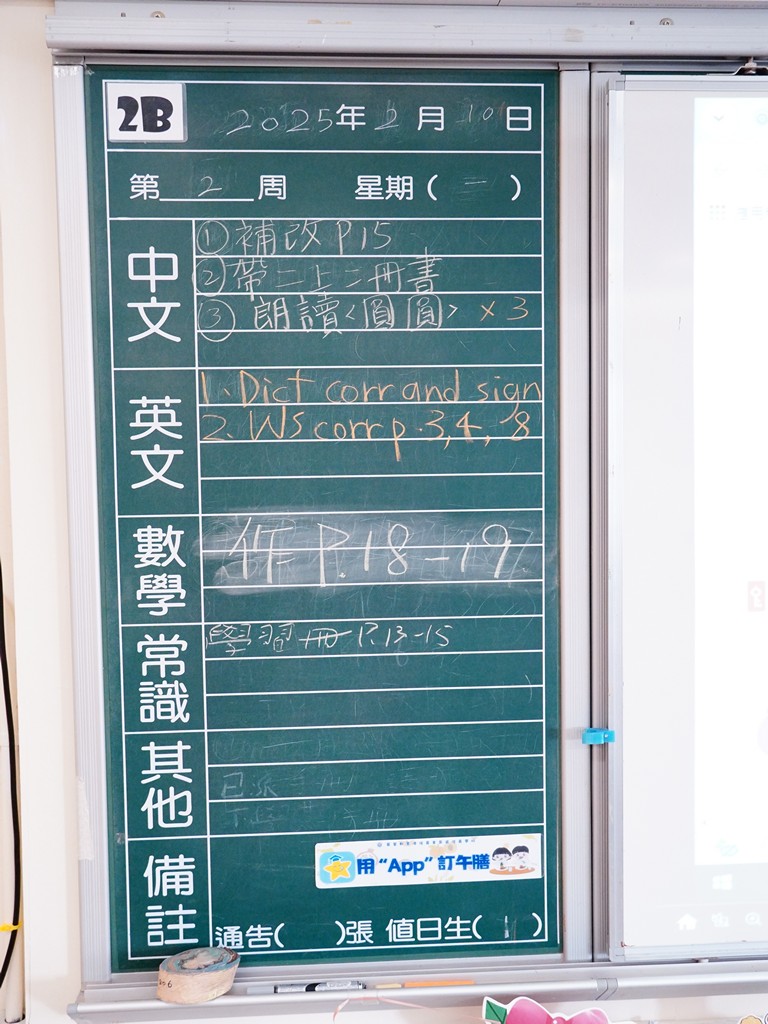 2B 2025年2月10日
第 2 周 星期(一)
中文
① 補改 P15
② 帶二上二冊書
③ 朗讀<圓圓> ×3
英文
1. Dict corr and sign
2. WS corr p.3,4, 8
數學
作 P.18-19
常識
學習冊 P.13-15
其他
已派
備註
用“App”訂午膳
通告( )張 值日生(1)